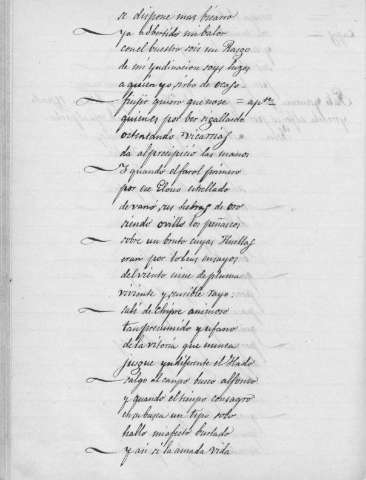 se dispone mas bizarro
ya advertido mi balor
con el buestro sois un Rasgo
de mi yndinacion soys luzes
a quien yo sirbo de ocaso
Jusfer quiero que nose
quienes por ber si gallardo
ostentando vizarrias
da al precipicio las manos
Y quando el farol primero
por ese Globo estrellado
devano sus hebras de oro
siendo ovillo los peñascos
sobre un bruto cuyas Huellas
eran por lo beus ensayos
del viento cisne de pluma
viviente y sensible rayo
sali de Chipre animoso
tan presumido y ufano
de la vitoria que nunca
jusgue yndiferente el Hado
salgo al campo busco alfonso
y quando el tiempo consagro
en su busca un tipo solo
hallo mi afecto burlado
y asi si la amada vida